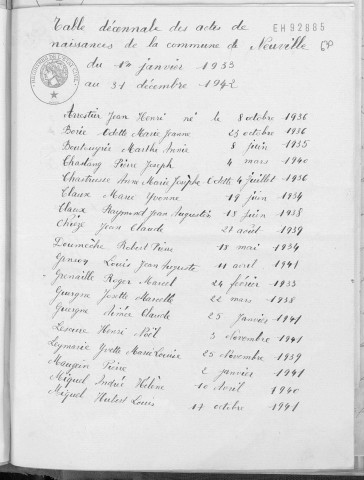 Table décennale des actes de
EH92885
naissances de la commune de Neuville
du 1er janvier 1933
au 31 décembre 1942
Arrestier Jean Henri né le 8 octobre 1936
Borie Odette Marie Jeanne 23 octobre 1936
Marthe Annie 8 juin 1935
Chastang Pierre Joseph 4 mars 1940
Chastrusse Anne Marie Josèphe Odette 4 juillet 1936
Claux Marie Yvonne 19 juin 1934
Claux Raymond Jean Augustin 18 juin 1938
Chièze Jean Claude 21 août 1939
Doumèche Robert Pierre 18 mai 1934
Louis Jean Auguste 11 avril 1941
Grenaille Roger Marcel 24 février 1933
Guergne Josette Marcelle 22 mars 1938
Guergne Aimée Claude 25 janvier 1941
Henri Noël 3 novembre 1941
Leymarie Yvette Marie Louise 25 novembre 1939
Maugein Pierre 2 janvier 1941
Miquel André Hélène 10 avril 1940
Miquel Hubert Louis 17 octobre 1941